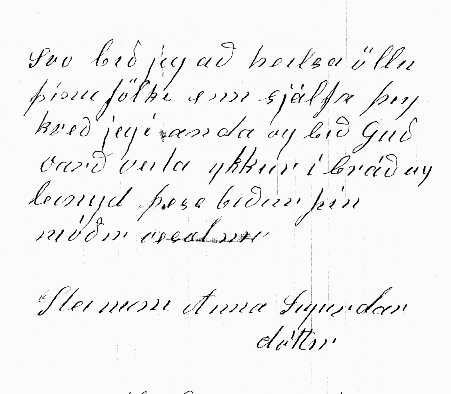 Svo bið jeg að heilsa öllu
þínu fólki enn sjálfa þig
kveð jeg í anda og bið Guð
varð veita ykkur í bráð og
leingd þess biður þín
móðir
Steinunn Anna Sigurdar
dóttir